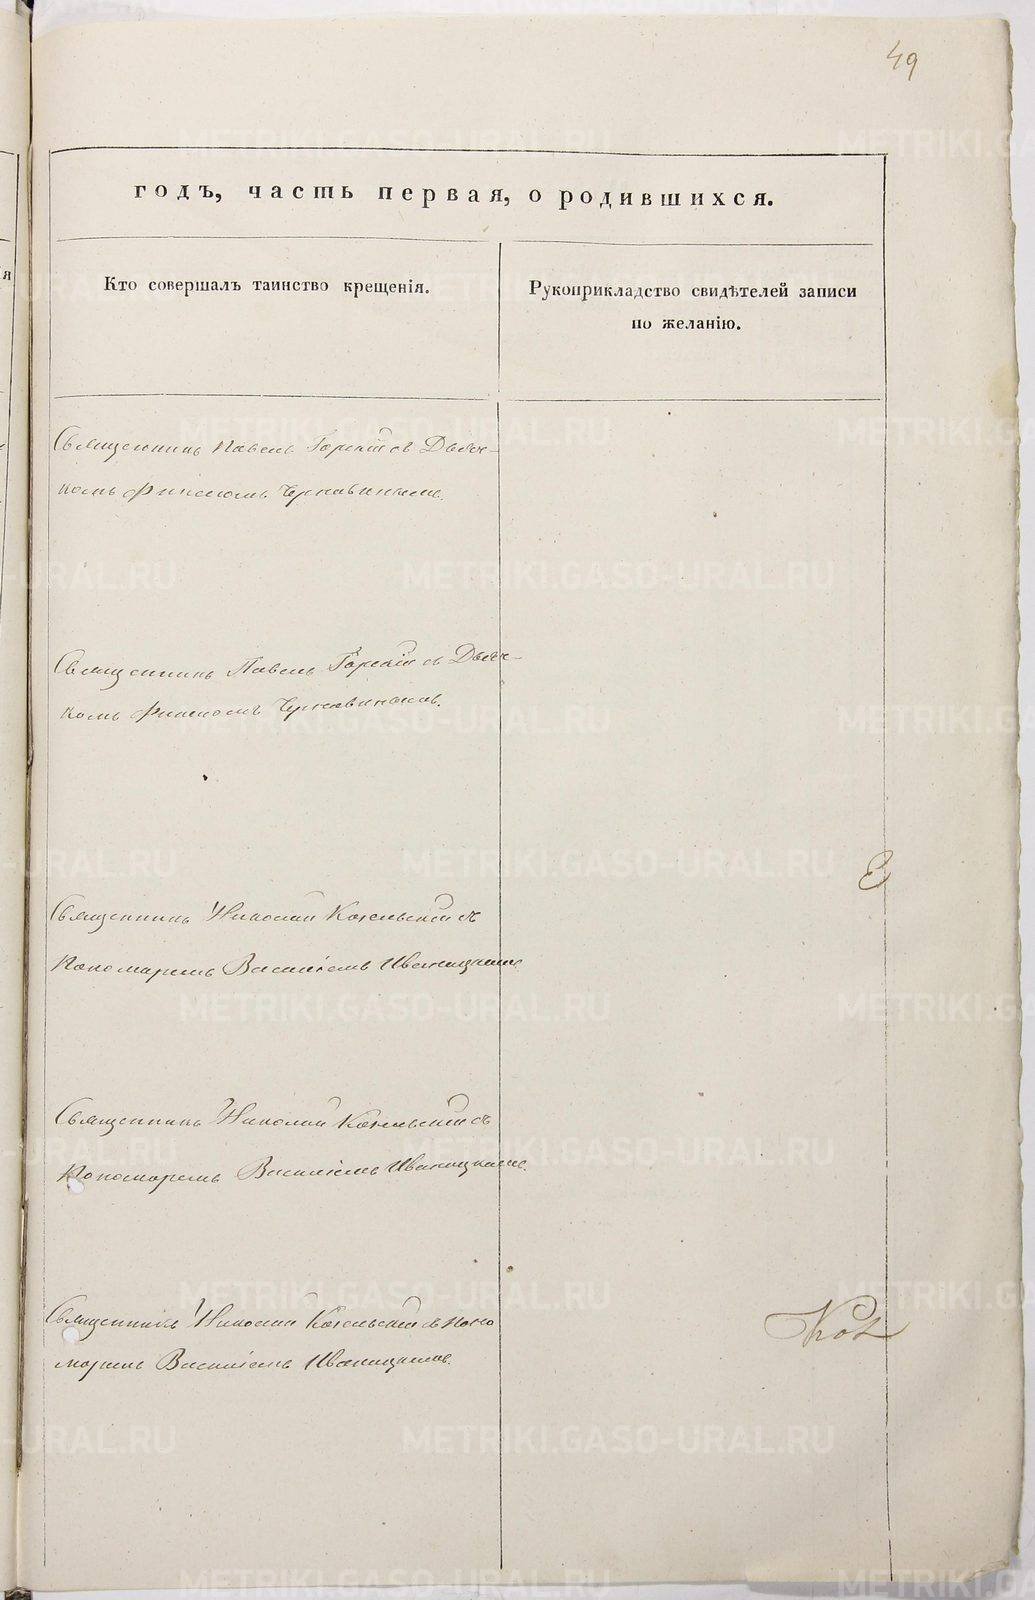 49
годъ, часть первая, о родившихся.
Кто совершалъ таинство крещенія.
Рукоприкладство свидѣтелей записи
по желанію.
Священникъ Павелъ Горскій съ Дьяч-
комъ Чернавинымъ.
Священникъ Павелъ Горскій съ Дьяч-
комъ Чернавинымъ.
Священникъ Николай съ
Пономаремъ Василіемъ Иваницкимъ.
Священникъ Николай съ
Пономаремъ Василіемъ Иваницкимъ.
Священникъ Николай съ Поно
маремъ Василіемъ Иваницкимъ.
METRIKI.GASO-URAL.RU